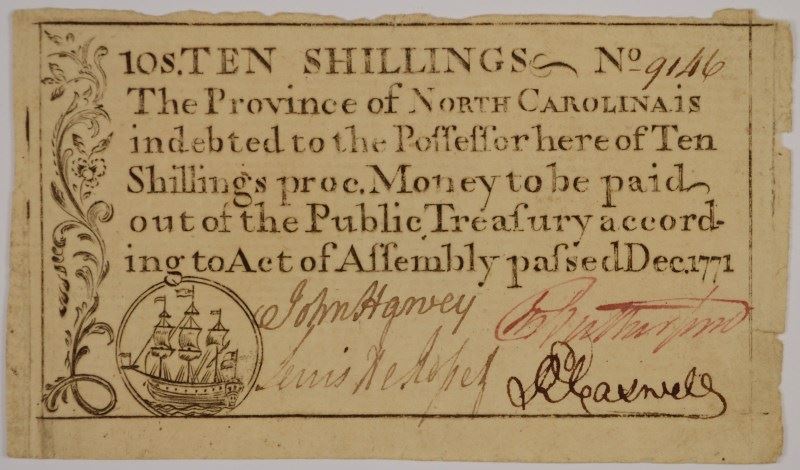 10S. TEN SHILLINGS No 9146
The Province of NORTH CAROLINA is
indebted to the Poſſeſſor here of Ten
Shillings proc. Money to be paid
out of the Public Treaſury accord-
ing to Act of Aſſembly paſſed Dec. 1771
John Harvey
R Rutherfurd
Lewis De Roſſet
R Caswell